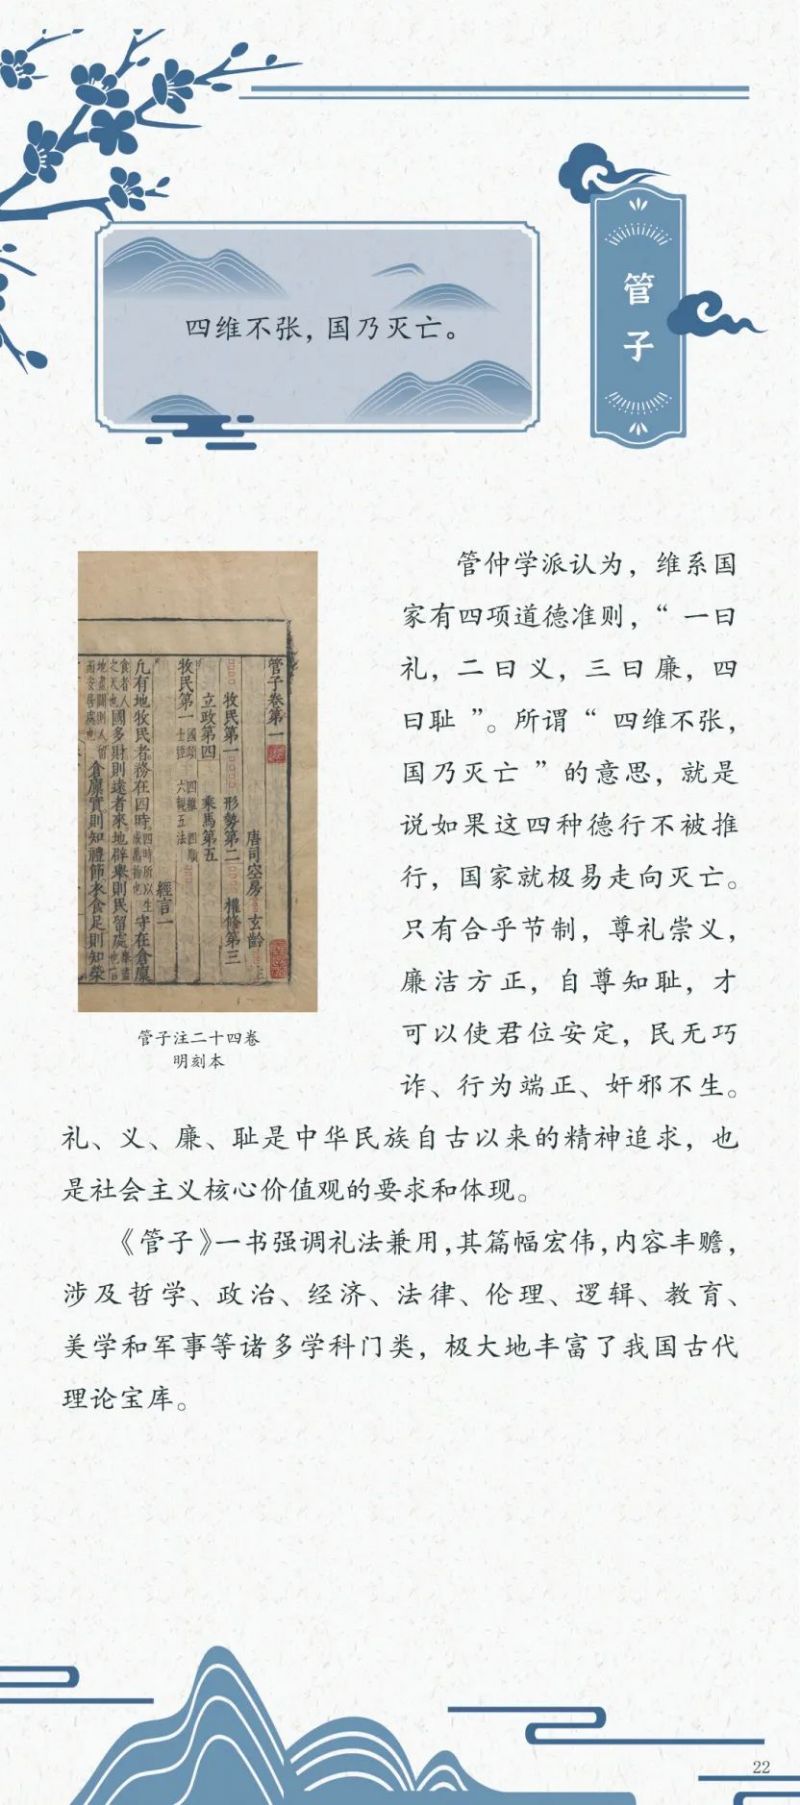 四维不张，国乃灭亡。
管子
管仲学派认为，维系国
家有四项道德准则，“一曰
礼，二曰义，三曰廉，四
曰耻”。所谓“四维不张，
国乃灭亡”的意思，就是
说如果这四种德行不被推
行，国家就极易走向灭亡。
只有合乎节制，尊礼崇义，
廉洁方正，自尊知耻，才
可以使君位安定，民无巧
诈、行为端正、奸邪不生。
礼、义、廉、耻是中华民族自古以来的精神追求，也
是社会主义核心价值观的要求和体现。
《管子》一书强调礼法兼用，其篇幅宏伟，内容丰赡，
涉及哲学、政治、经济、法律、伦理、逻辑、教育、
美学和军事等诸多学科门类，极大地丰富了我国古代
理论宝库。
管子卷第一
唐司空房玄齡
牧民第一 形勢第二 權修第三
立政第四 乘馬第五
牧民第一 國頌 四維 四順 士經 六親五法
經言一
凡有地牧民者務在四時四時所以生成萬物也守在倉廩
食者人之天也國多財則遠者來地辟舉則民留處
倉廩實則知禮節衣食足則知榮
管子注二十四卷
明刻本
22